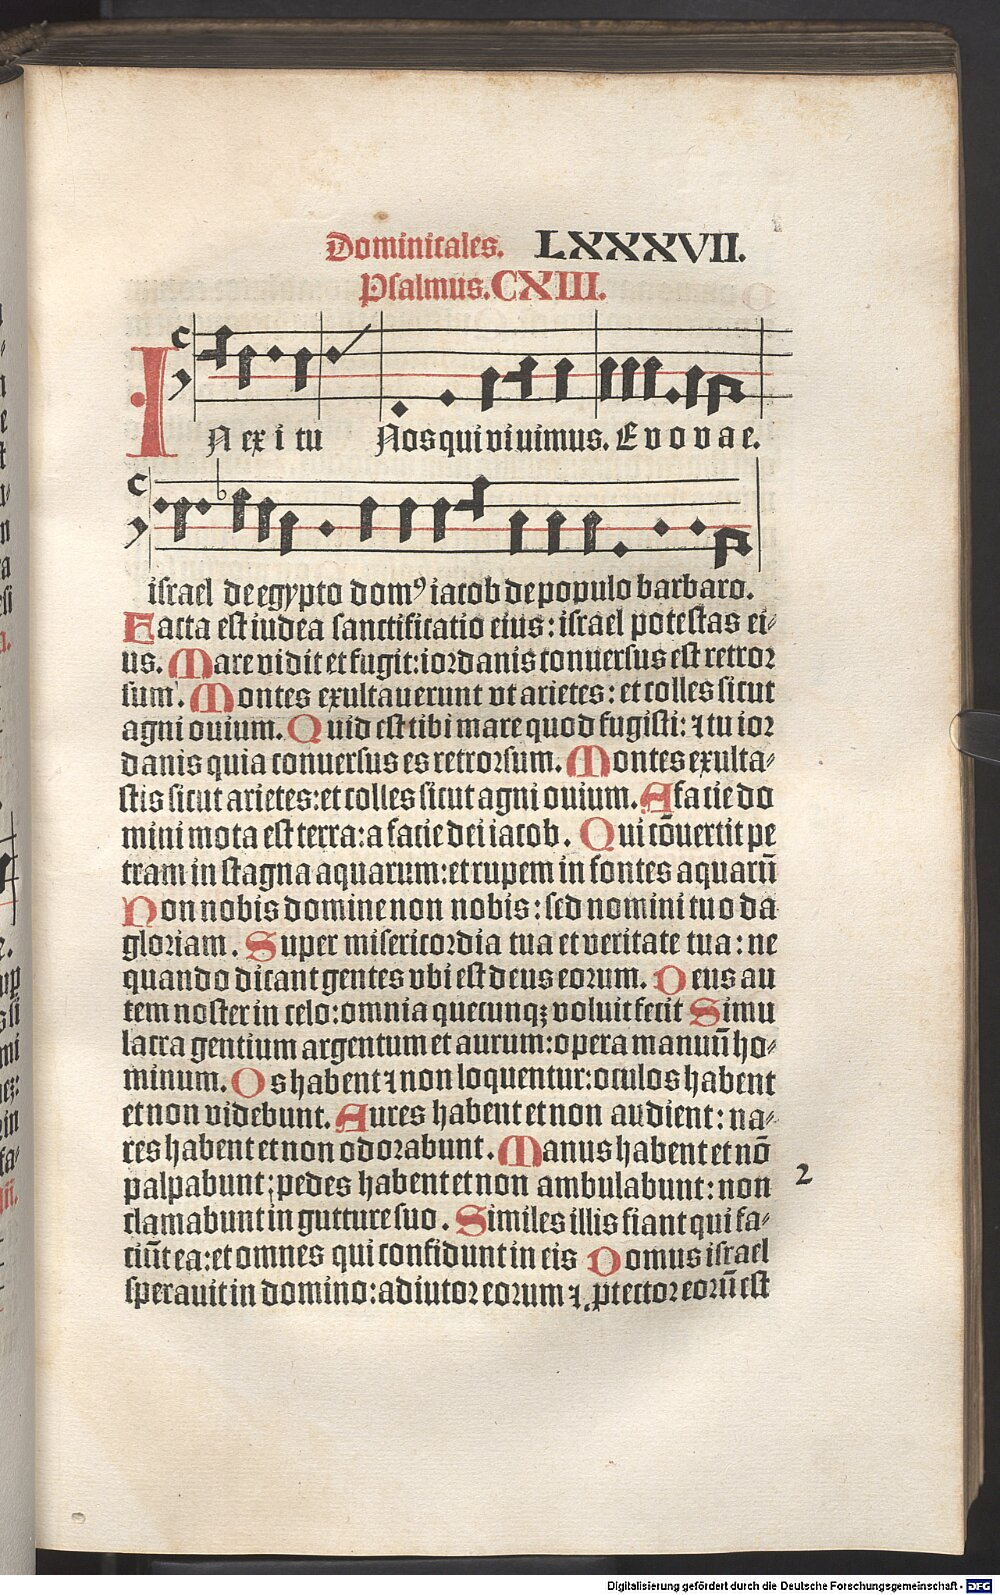 Dominicales. LXXXVII.
Psalmus. CXIII.
IN ex i tu Nos qui viuimus. Evovae.
israel de egypto domꝰ iacob de populo barbaro.
Facta est iudea sanctificatio eius: israel potestas ei⸗
us. Mare vidit et fugit: iordanis conuersus est retror
sum. Montes exultauerunt vt arietes: et colles sicut
agni ouium. Quid est tibi mare quod fugisti: ⁊ tu ior
danis quia conuersus es retrorsum. Montes exulta⸗
stis sicut arietes: et colles sicut agni ouium. A facie do
mini mota est terra: a facie dei iacob. Qui cōuertit pe
tram in stagna aquarum: et rupem in fontes aquarū
Non nobis domine non nobis: sed nomini tuo da
gloriam. Super misericordia tua et veritate tua: ne
quando dicant gentes vbi est deus eorum. Deus au
tem noster in celo: omnia quecunqꝫ voluit fecit Simu
lacra gentium argentum et aurum: opera manuū ho⸗
minum. Os habent ⁊ non loquentur: oculos habent
et non videbunt. Aures habent et non audient: na⸗
res habent et non odorabunt. Manus habent et nō
palpabunt; pedes habent et non ambulabunt: non
clamabunt in gutture suo. Similes illis fiant qui fa⸗
ciūt ea: et omnes qui confidunt in eis Domus israel
sperauit in domino: adiutor eorum ⁊ ꝓtector eorū est
2
Digitalisierung gefördert durch die Deutsche Forschungsgemeinschaft - DFG